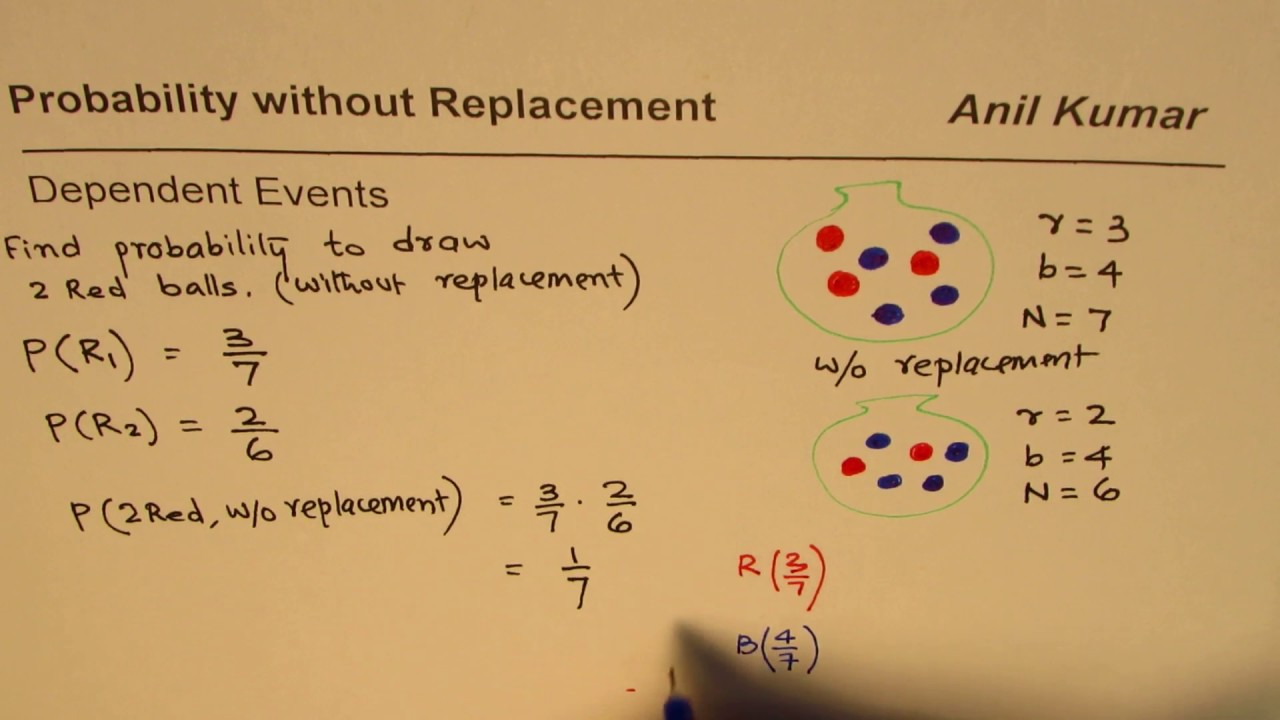 Probability without Replacement Anil Kumar
Dependent Events
Find probability to draw
2 Red balls. (without replacement)
P(R₁) = 3/7
P(R₂) = 2/6
P(2Red, w/o replacement) = 3/7 . 2/6
= 1/7
r = 3
b = 4
N = 7
w/o replacement
r = 2
b = 4
N = 6
R(3/7)
B(4/7)